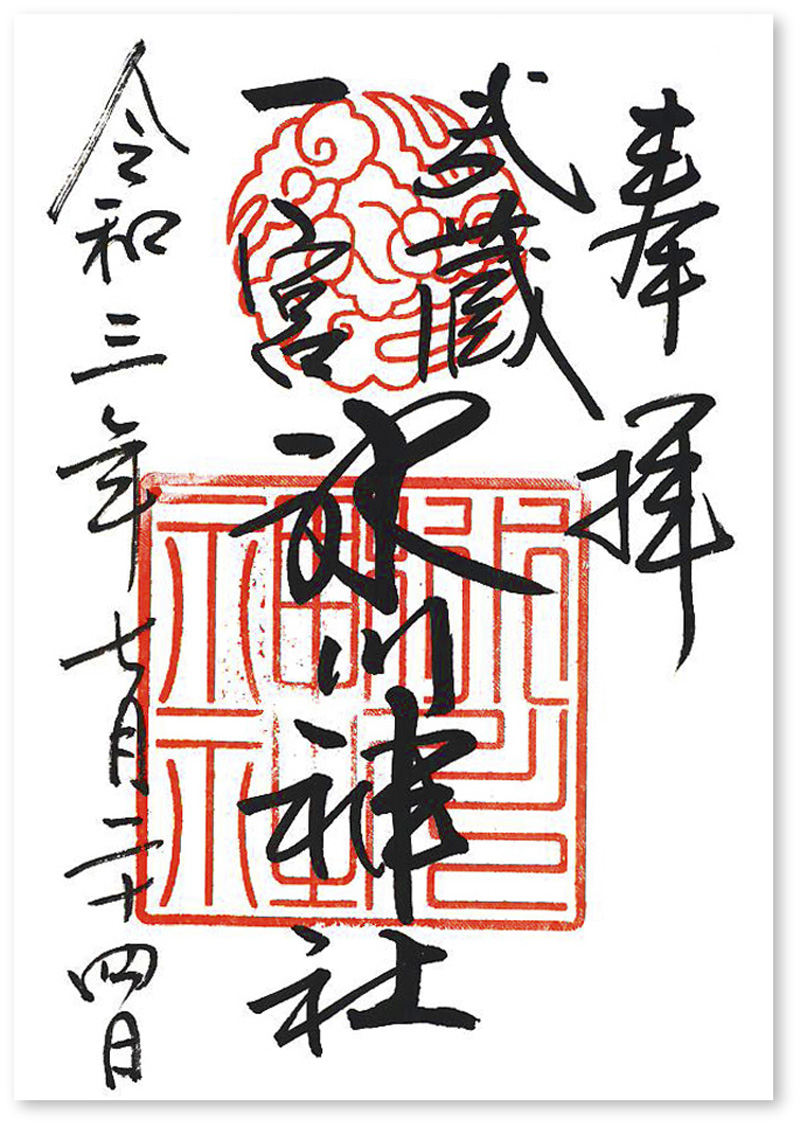 奉拝
武蔵
一宮
氷川神社
令和三年七月二十四日
氷川神社